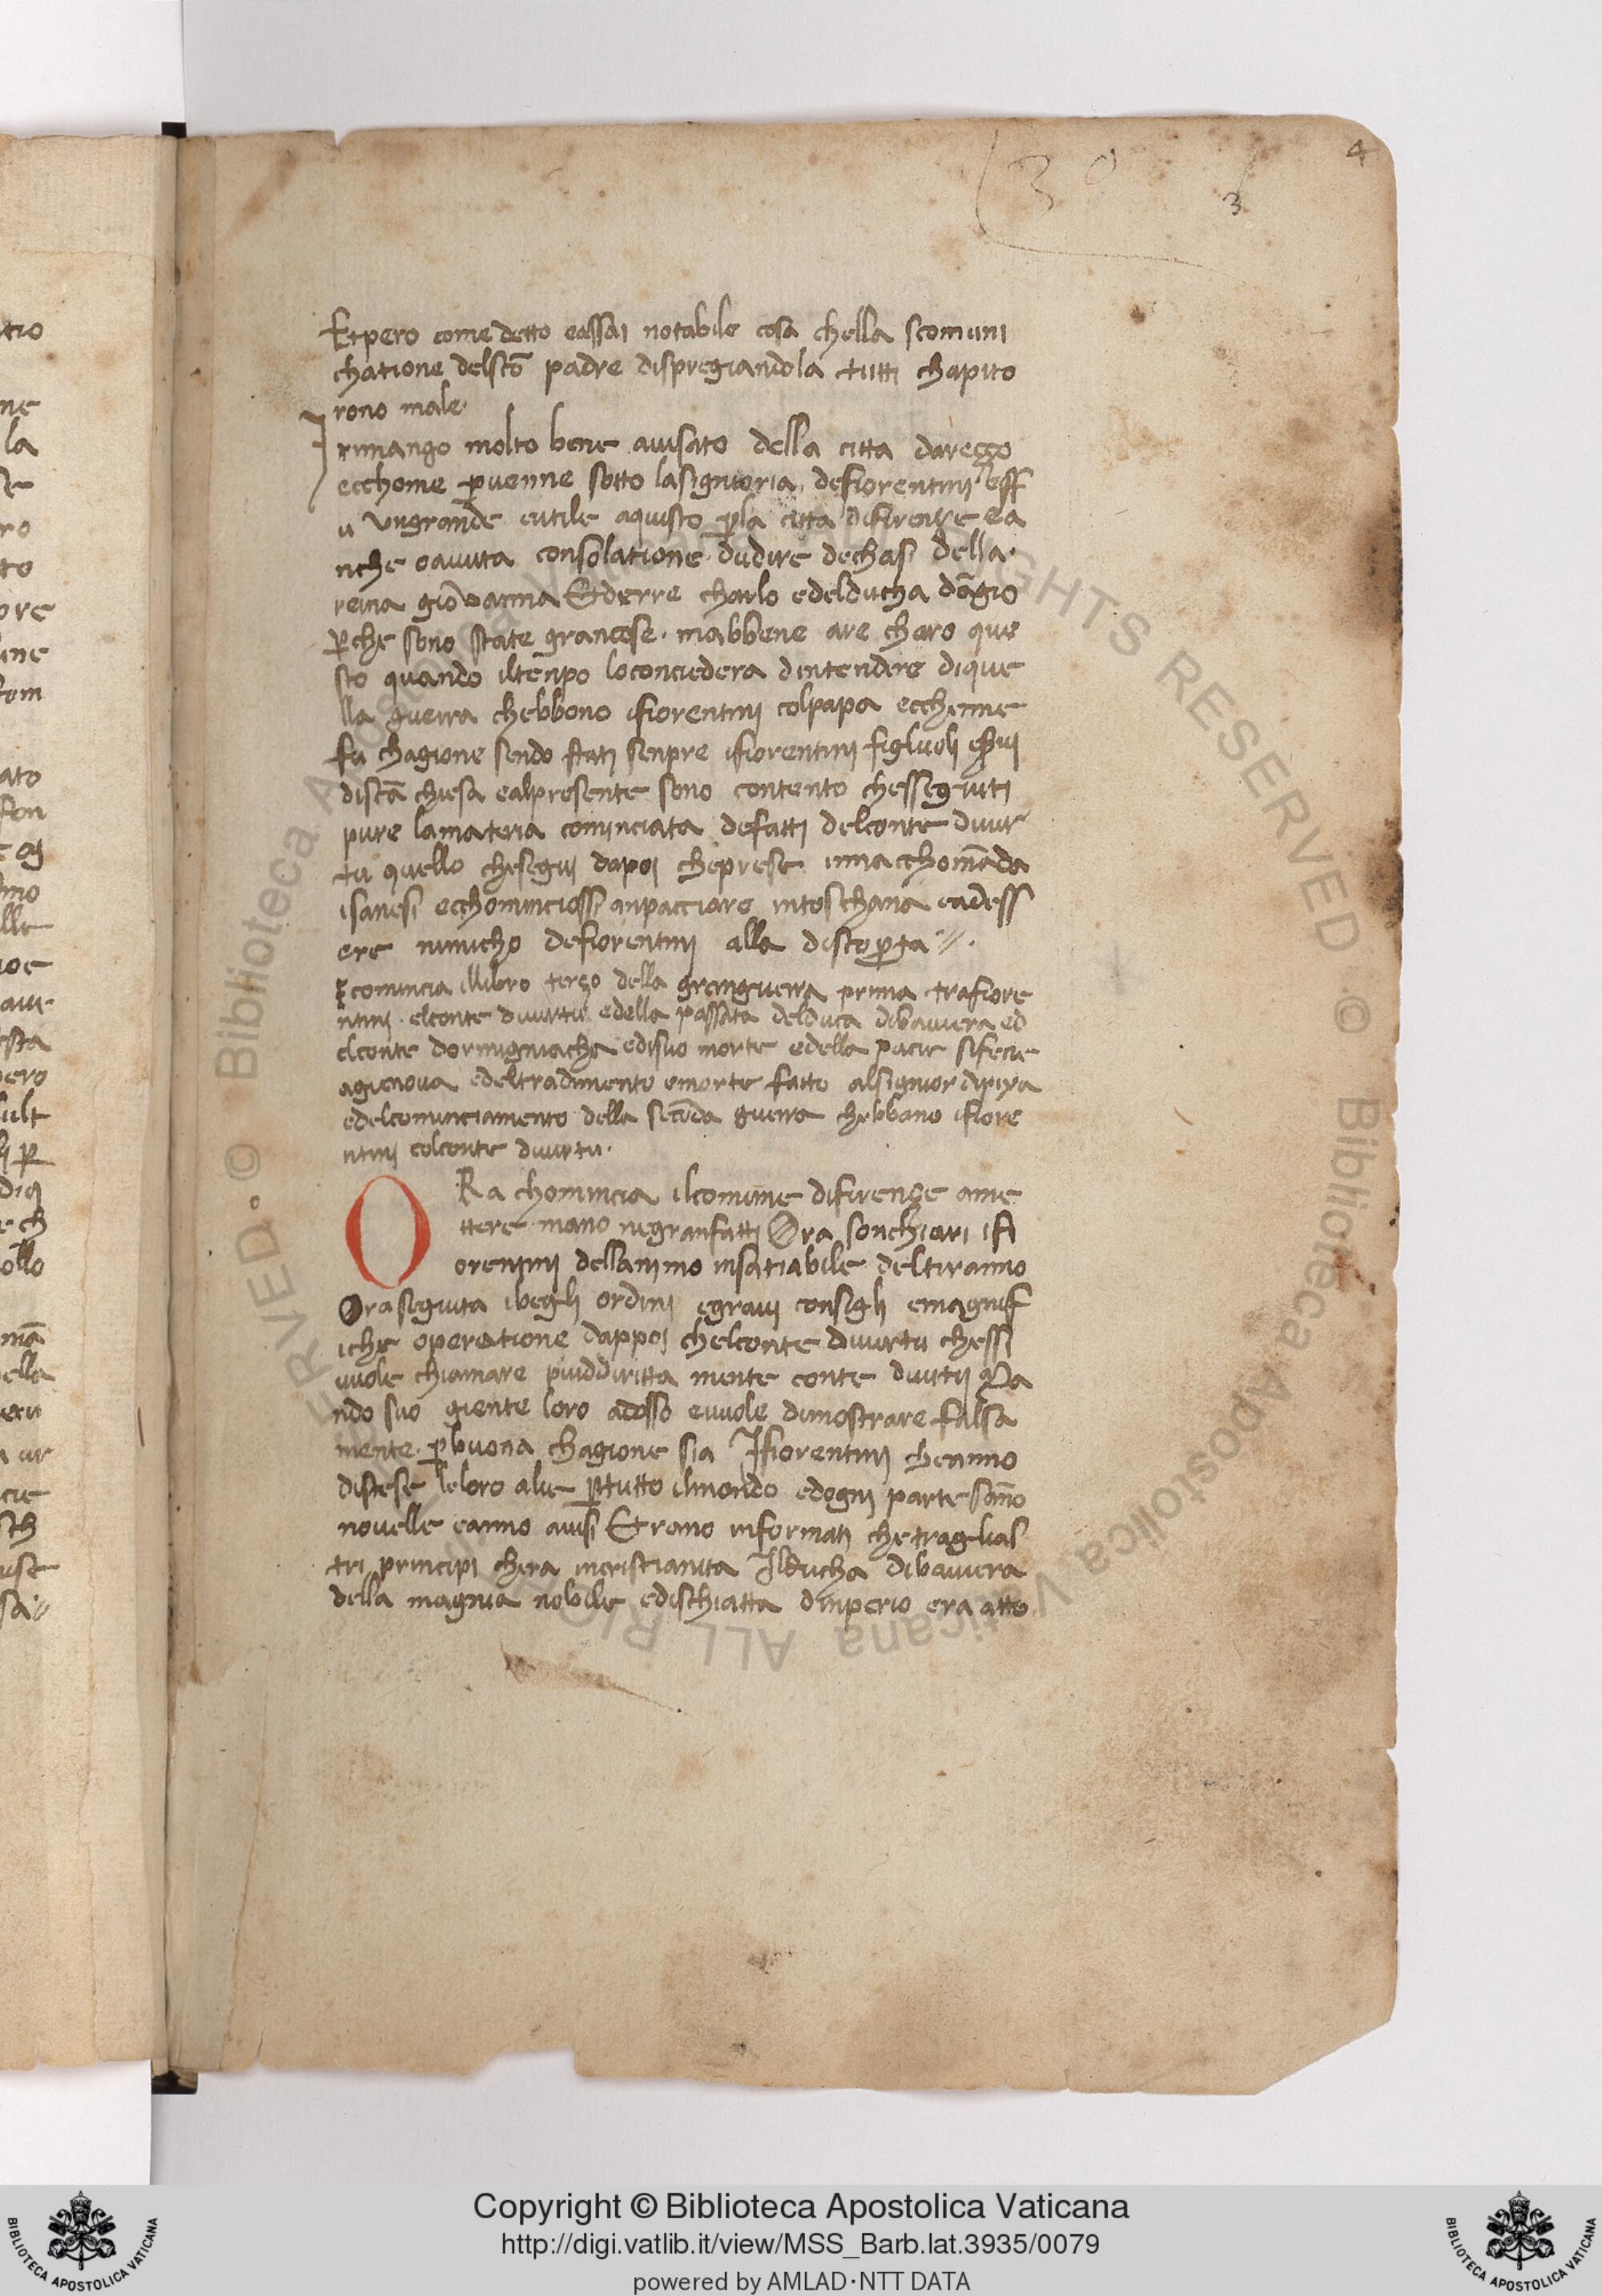 4
3
Et pero come detto eassai notabile cosa chella scomuni
chatione delsc̄o padre dispregiandola tutti chapito
rono male·
I rimango molto bene avisato della citta darezzo
ecchome ꝑvenne sotto lasignioria defiorentini eff
u vngrande eutile aquisto ꝑla citta difirenze ea
nche oauuta consolatione dudire dechasi della·
reina giōvanna Ederre charlo edelducha dāgio
ꝑche sono state grancose· mabbene are charo que
sto quando iltenpo loconciedera dintendere dique
lla guerra chebbono ifiorentini colpapa ecchenne
fu chagione sendo stati senpre ifiorentini figluoli
discā chiesa ealpresente sono contento chesseguiti
pure lamateria cominciata defatti delconte divir
tu quello chesegui dapoi cheprese imacchomāda
isanesi ecchominciossi anpacciare intoschana eadess
ere nimicho defiorentini alla discoꝑta·//·
comincia illibro terzo della granguerra prima trafiore
ntini· elconte divirtu edella passata delduca dibaviera ed
elconte dormigniacha edisuo morte edella pacie sifecie
agienova edeltradimento emorte fatto alsignior dipixa
edelcominciamento della secōda guerra chebbano ifiore
ntini colconte divirtu·
ORa chomincia ilcomune difirenze ame
ttere mano negranfatti Ora sonchiari ifi
orentini dellanimo insatiabile deltiranno
Orasiguita ibegli ordini egravi consigli emagnif
iche operatione dappoi chelconte divirtu chessi
vuole chiamare piuddiritta mente conte divitii Ma
ndo suo giente loro adosso evuole dimostrare falsa
mente· ꝑbuona chagione sia Ifiorentini chenno
distese leloro alie ꝑtutto ilmondo edogni parte sāno
novelle eanno avisi Erano informati chetraglial
tri principi chera incristianita Ilducha dibaviera
della magnia nobile edischiatta dinperio era atto
Copyright © Biblioteca Apostolica Vaticana
http://digi.vatlib.it/view/MSS_Barb.lat.3935/0079
powered by AMLAD·NTT DATA